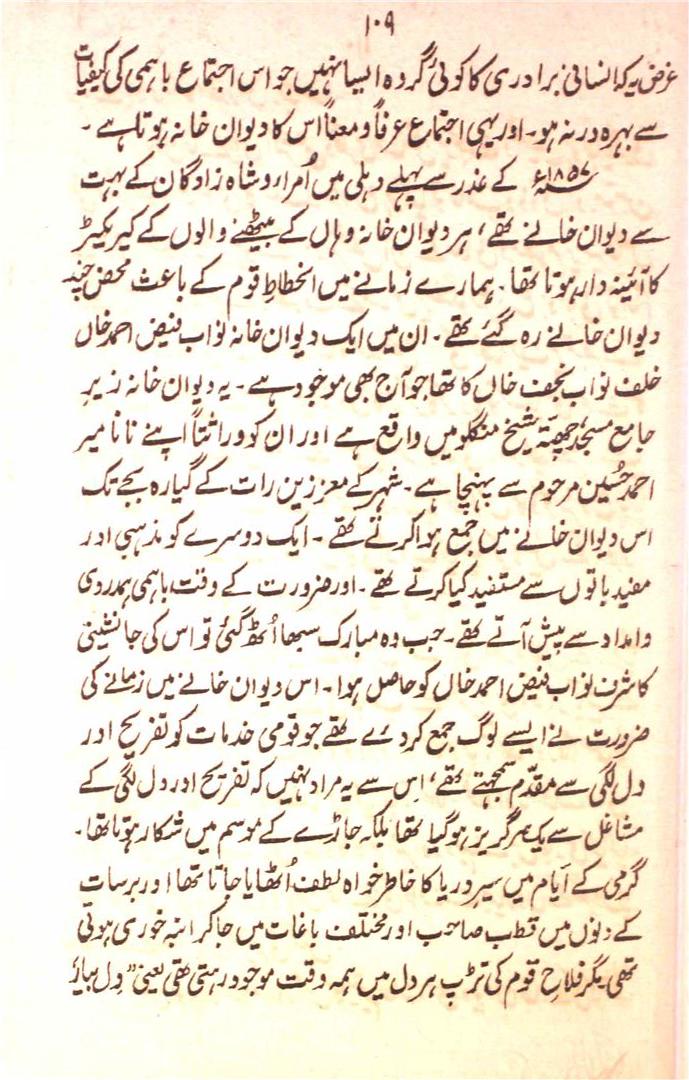 ۱۰۹
غرض یہ کہ انسانی برادری کا کوئی گروہ ایسا نہیں جو اس اجتماع باہمی کی کیفیات
سے بہرہ ور نہ ہو۔ اور یہی اجتماع عرفاً و معناً اس کا دیوان خانہ ہوتا ہے۔
۱۸۵۷ء کے غدر سے پہلے دہلی میں اُمراء و شاہ زادگان کے بہت
سے دیوان خانے تھے، ہر دیوان خانہ وہاں کے بیٹھنے والوں کے کیریکٹر
کا آئینہ دار ہوتا تھا۔ ہمارے زمانے میں انحطاطِ قوم کے باعث محض چند
دیوان خانے رہ گئے تھے۔ ان میں ایک دیوان خانہ نواب فیض احمد خاں
خلف نواب نجف خاں کا تھا جو آج بھی موجود ہے۔ یہ دیوان خانہ زیرِ
جامع مسجد، چھتّہ شیخ منگلو میں واقع ہے اور ان کو وراثتاً اپنے نانا میر
احمد حُسین مرحوم سے پہنچا ہے۔ شہر کے معززین رات کے گیارہ بجے تک
اس دیوان خانے میں جمع ہوا کرتے تھے۔ ایک دوسرے کو مذہبی اور
مفید باتوں سے مستفید کیا کرتے تھے۔ اور ضرورت کے وقت، باہمی ہمدردی
و امداد سے پیش آتے تھے۔ جب وہ مبارک سبھا اُٹھ گئی تو اس کی جانشینی
کا شرف نواب فیض احمد خاں کو حاصل ہوا۔ اس دیوان خانے میں زمانے کی
ضرورت نے ایسے لوگ جمع کر دئے تھے جو قومی خدمات کو تفریح اور
دل لگی سے مقدّم سمجھتے تھے، اِس سے یہ مراد نہیں کہ تفریح اور دل لگی کے
مشاغل سے یکسر گریز ہو گیا تھا بلکہ جاڑے کے موسم میں شکار ہوتا تھا۔
گرمی کے ایّام میں سیرِ دریا کا خاطر خواہ لطف اُٹھایا جاتا تھا اور برسات
کے دنوں میں قطب صاحب اور مختلف باغات میں جا کر انبہ خوری ہوتی
تھی مگر فلاحِ قوم کی تڑپ ہر دل میں ہمہ وقت موجود رہتی تھی یعنی "دل بیار